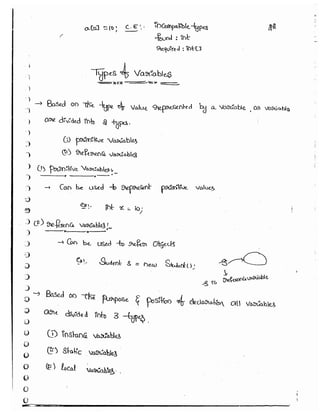 a[0] = 10; C.E:- incompatible types
found : int
required : int[]
Types of Variables
→ Based on the type of value represented by a variable, all variables
are divided into 2 types.
(i) primitive variables
(ii) reference variables
(1) Primitive Variables:-
→ Can be used to represent primitive values
Ex:- int x = 10;
(2) reference variables:-
→ Can be used to refer objects
Ex:- Student s = new Student();
s is reference variable
→ Based on the purpose & position of declaration all variables
are divided into 3 types.
(i) instance variables
(ii) static variables
(iii) local variables.